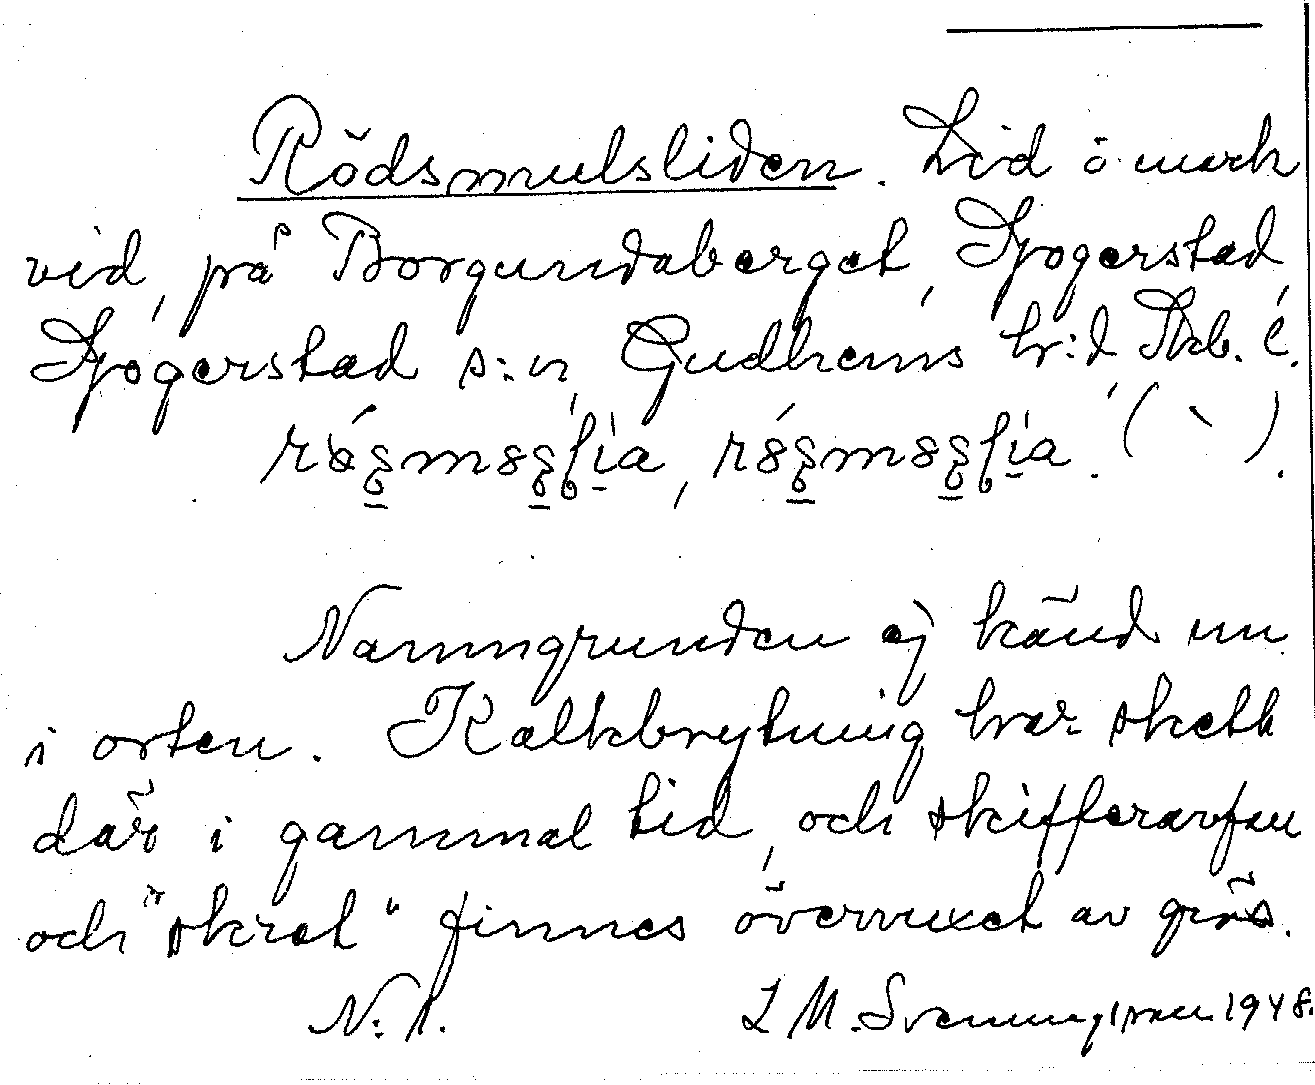 Rödsmulsliden. Lid o mark
vid, på Borgundaberget, Sjogerstad,
Sjogerstad s:n, Gudhems h:d, Skb. l.
Namngrunden ej känd nu
i orten. Kalkbrytning har skett
där i gammal tid, och skifferavfall
och "skret" finnes övervuxet av gräs.
N. l. L M. Svenningsson 1948.